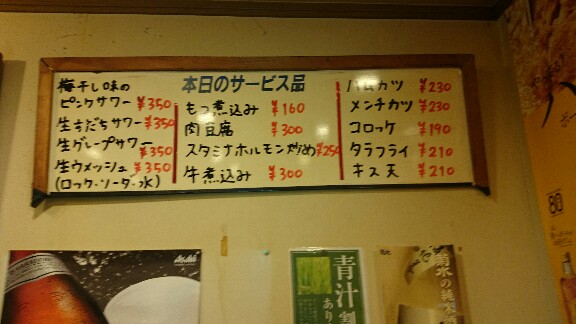 本日のサービス品
梅干し味の
ピンクサワー ¥350
生すだちサワー ¥350
生グレープサワー ¥350
生ウメッシュ ¥350
(ロック・ソーダ・水)
もつ煮込み ¥160
肉豆腐 ¥300
スタミナホルモン炒め ¥250
牛煮込み ¥300
ハムカツ ¥230
メンチカツ ¥230
コロッケ ¥190
タラフライ ¥210
キス天 ¥210
80
Asahi
青汁割
あり
菊水の純米酒